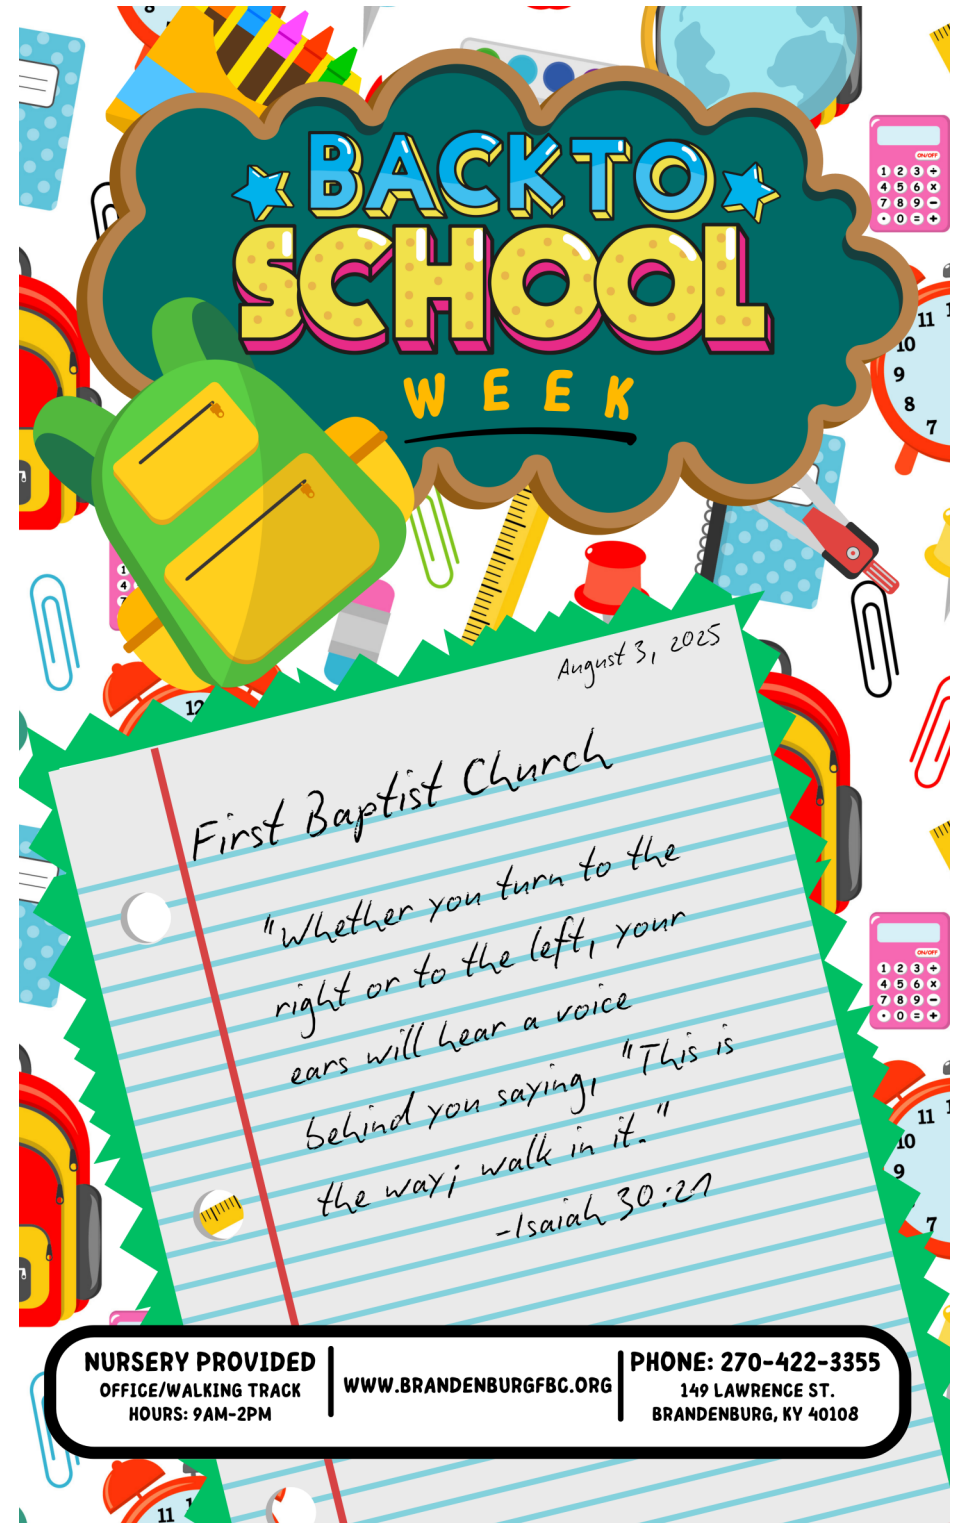 BACK TO
SCHOOL
WEEK
August 3, 2025
First Baptist Church
"Whether you turn to the
right or to the left, your
ears will hear a voice
behind you saying, "This is
the way; walk in it."
-Isaiah 30:21
NURSERY PROVIDED
OFFICE/WALKING TRACK
HOURS: 9AM-2PM
WWW.BRANDENBURGFBC.ORG
PHONE: 270-422-3355
149 LAWRENCE ST.
BRANDENBURG, KY 40108
ON/OFF
1 2 3 ÷
4 5 6 x
7 8 9 -
. 0 = +
11
10
9
8
7
1
4
12
ON/OFF
1 2 3 ÷
4 5 6 x
7 8 9 -
. 0 = +
11
10
9
7
11